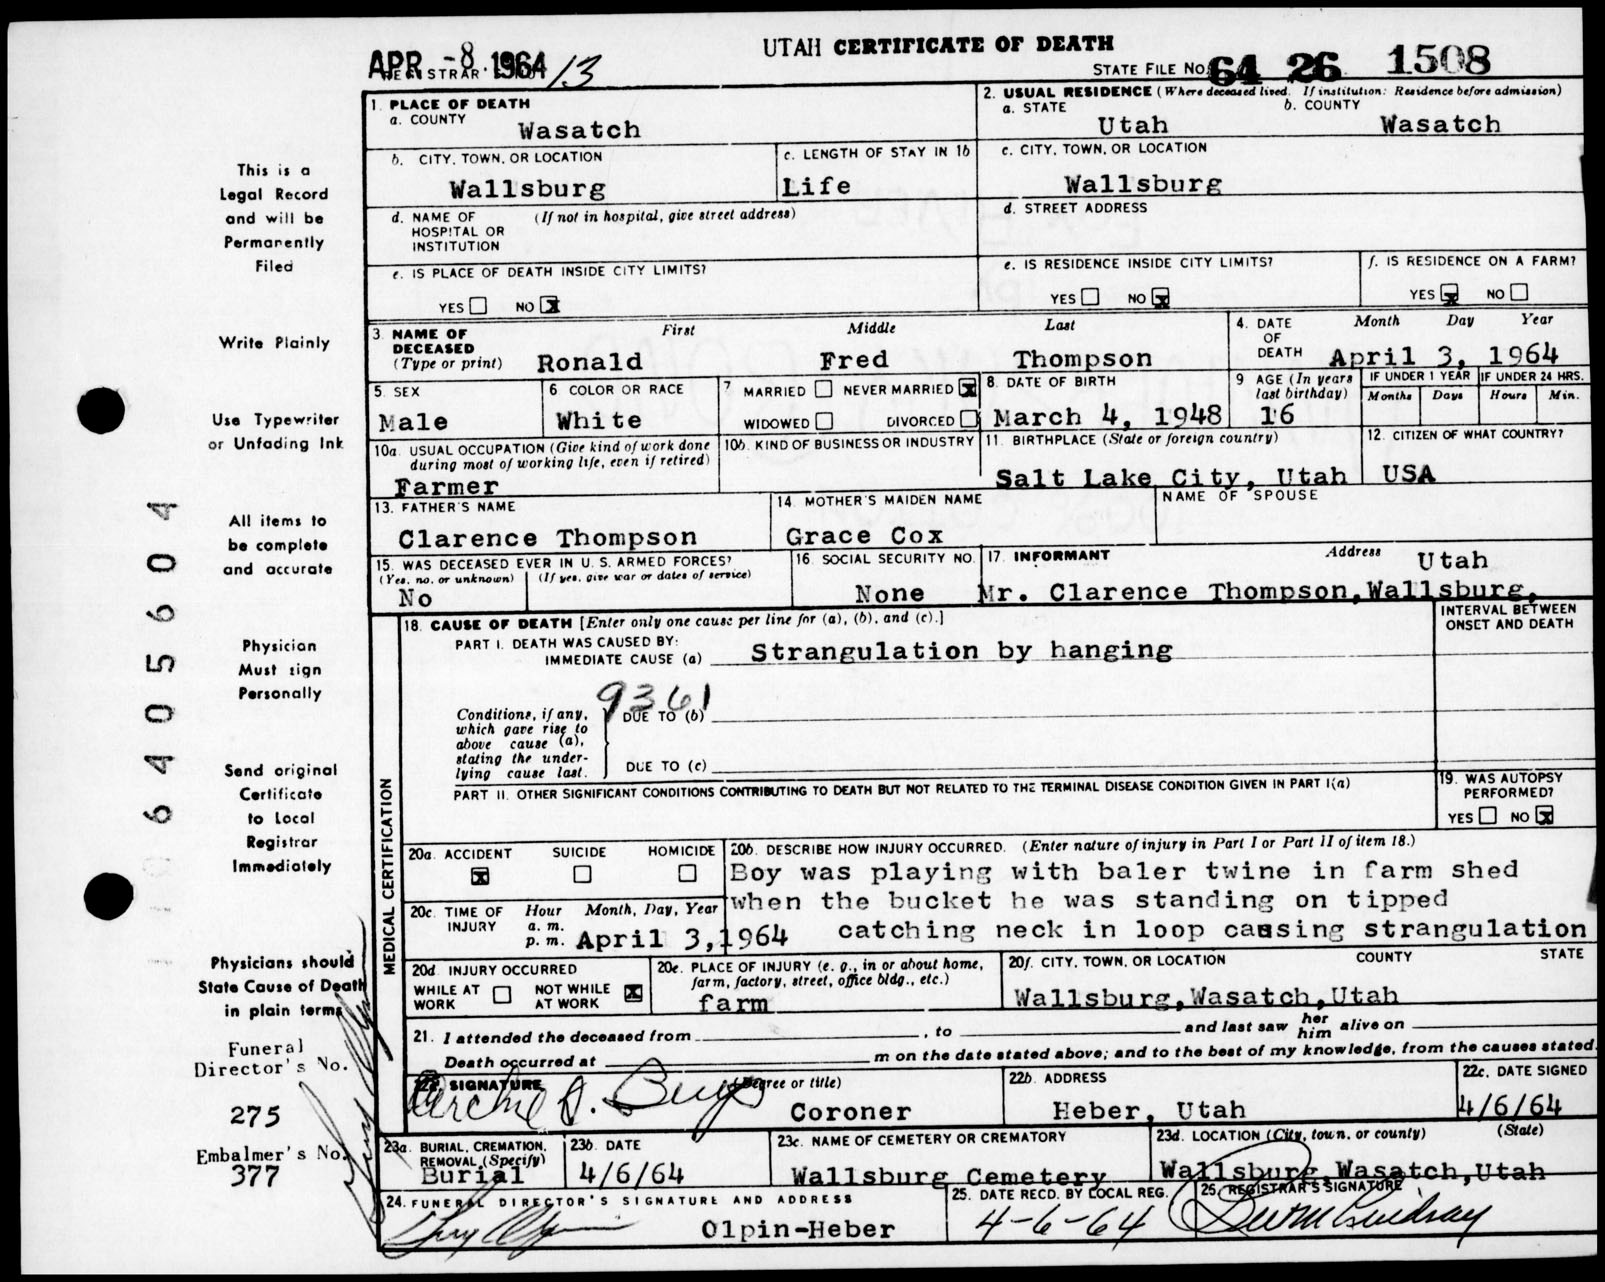 UTAH CERTIFICATE OF DEATH
APR -8 1964 13
REGISTRAR
STATE FILE NO. 64 26 1508
This is a
Legal Record
and will be
Permanently
Filed
Write Plainly
Use Typewriter
or Unfading Ink
All items to
be complete
and accurate
Physician
Must sign
Personally
Send original
Certificate
to Local
Registrar
Immediately
Physicians should
State Cause of Death
in plain terms
Funeral
Director's No.
275
Embalmer's No.
377
6405604
1. PLACE OF DEATH
a. COUNTY
Wasatch
2. USUAL RESIDENCE (Where deceased lived. If institution: Residence before admission)
a. STATE b. COUNTY
Utah Wasatch
b. CITY, TOWN, OR LOCATION
Wallsburg
c. LENGTH OF STAY IN 1b
Life
c. CITY, TOWN, OR LOCATION
Wallsburg
d. NAME OF (If not in hospital, give street address)
HOSPITAL OR
INSTITUTION
d. STREET ADDRESS
e. IS PLACE OF DEATH INSIDE CITY LIMITS?
YES NO X
e. IS RESIDENCE INSIDE CITY LIMITS?
YES NO X
f. IS RESIDENCE ON A FARM?
YES X NO
3. NAME OF First Middle Last
DECEASED
(Type or print) Ronald Fred Thompson
4. DATE Month Day Year
OF
DEATH April 3, 1964
5. SEX
Male
6 COLOR OR RACE
White
7 MARRIED NEVER MARRIED X
WIDOWED DIVORCED
8. DATE OF BIRTH
March 4, 1948
9 AGE (In years
last birthday)
16
IF UNDER 1 YEAR IF UNDER 24 HRS.
Months Days Hours Min.
10a. USUAL OCCUPATION (Give kind of work done
during most of working life, even if retired)
Farmer
10b. KIND OF BUSINESS OR INDUSTRY
11. BIRTHPLACE (State or foreign country)
Salt Lake City, Utah
12. CITIZEN OF WHAT COUNTRY?
USA
13. FATHER'S NAME
Clarence Thompson
14. MOTHER'S MAIDEN NAME
Grace Cox
NAME OF SPOUSE
15. WAS DECEASED EVER IN U. S. ARMED FORCES?
(Yes, no, or unknown) (If yes, give war or dates of service)
No
16. SOCIAL SECURITY NO.
None
17. INFORMANT Address Utah
Mr. Clarence Thompson, Wallsburg,
MEDICAL CERTIFICATION
18. CAUSE OF DEATH [Enter only one cause per line for (a), (b), and (c).]
INTERVAL BETWEEN
ONSET AND DEATH
PART I. DEATH WAS CAUSED BY:
IMMEDIATE CAUSE (a) Strangulation by hanging
9361
Conditions, if any,
which gave rise to
above cause (a),
stating the under-
lying cause last.
DUE TO (b)
DUE TO (c)
PART II. OTHER SIGNIFICANT CONDITIONS CONTRIBUTING TO DEATH BUT NOT RELATED TO THE TERMINAL DISEASE CONDITION GIVEN IN PART I(a)
19. WAS AUTOPSY
PERFORMED?
YES NO X
20a. ACCIDENT SUICIDE HOMICIDE
X
20b. DESCRIBE HOW INJURY OCCURRED. (Enter nature of injury in Part I or Part II of item 18.)
Boy was playing with baler twine in farm shed
when the bucket he was standing on tipped
catching neck in loop causing strangulation
20c. TIME OF Hour Month, Day, Year
INJURY a. m.
p. m. April 3, 1964
20d. INJURY OCCURRED
WHILE AT NOT WHILE X
WORK AT WORK
20e. PLACE OF INJURY (e. g., in or about home,
farm, factory, street, office bldg., etc.)
farm
20f. CITY, TOWN, OR LOCATION COUNTY STATE
Wallsburg, Wasatch, Utah
21. I attended the deceased from , to and last saw her him alive on
Death occurred at m on the date stated above; and to the best of my knowledge, from the causes stated.
22a. SIGNATURE (Degree or title)
Coroner
22b. ADDRESS
Heber, Utah
22c. DATE SIGNED
4/6/64
23a. BURIAL, CREMATION,
REMOVAL (Specify)
Burial
23b. DATE
4/6/64
23c. NAME OF CEMETERY OR CREMATORY
Wallsburg Cemetery
23d. LOCATION (City, town, or county) (State)
Wallsburg, Wasatch, Utah
24. FUNERAL DIRECTOR'S SIGNATURE AND ADDRESS
Olpin-Heber
25. DATE RECD. BY LOCAL REG.
4-6-64
25. REGISTRAR'S SIGNATURE